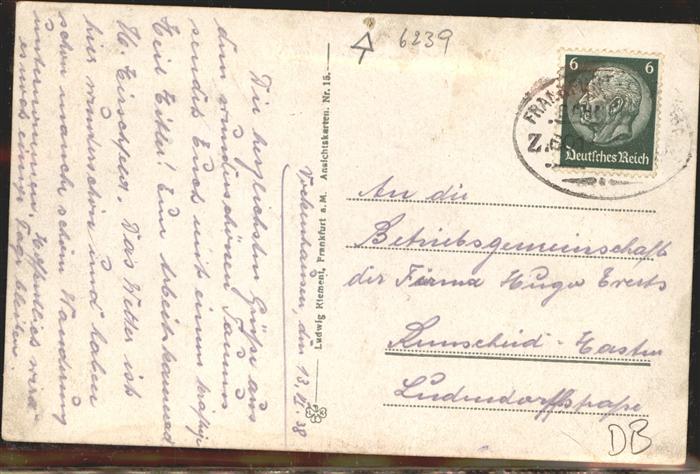 6239
6 6
Deutsches Reich
FRANKFURT
Z.
Vockenhausen, den 13. VI. 38
Die herzlichsten Grüße aus
dem wunderschönen Taunus
sendet Euch mit einem kräftigen
Heil Hitler! Euer Arbeitskamerad
H. Das Wetter ist
hier wunderschön und haben
schon manch schöne Wanderung
unternommen. Hoffentlich wird
es noch einige Tage bleiben.
Ludwig Klement, Frankfurt a. M. Ansichtskarten. Nr. 15.
An die
Betriebsgemeinschaft
der Firma Hugo Everts
Remscheid-Hasten
Ludendorffstraße
DB